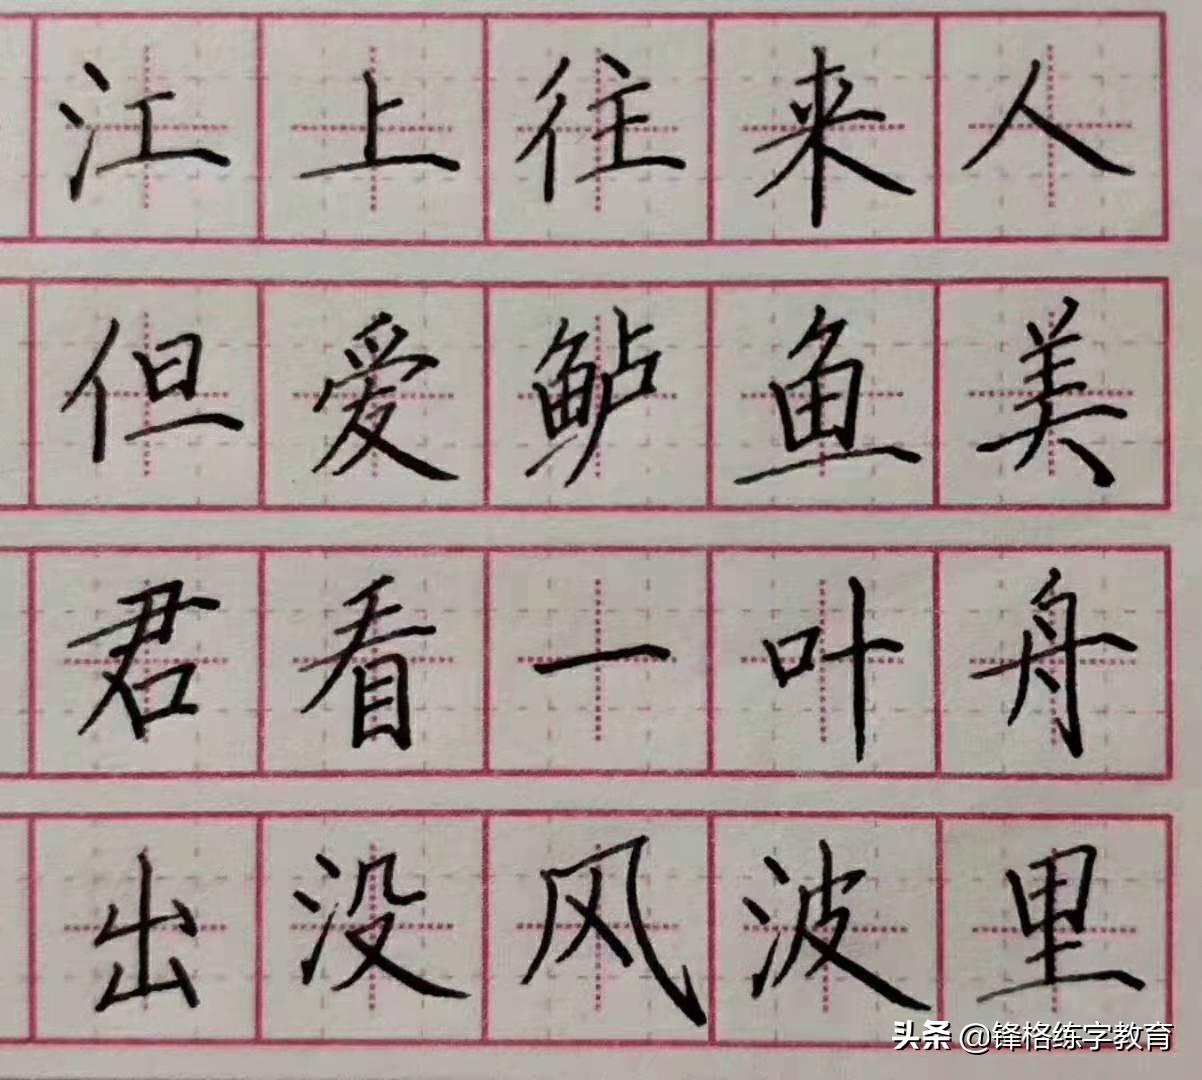 江上往来人
但爱鲈鱼美
君看一叶舟
出没风波里
头条 @锋格练字教育